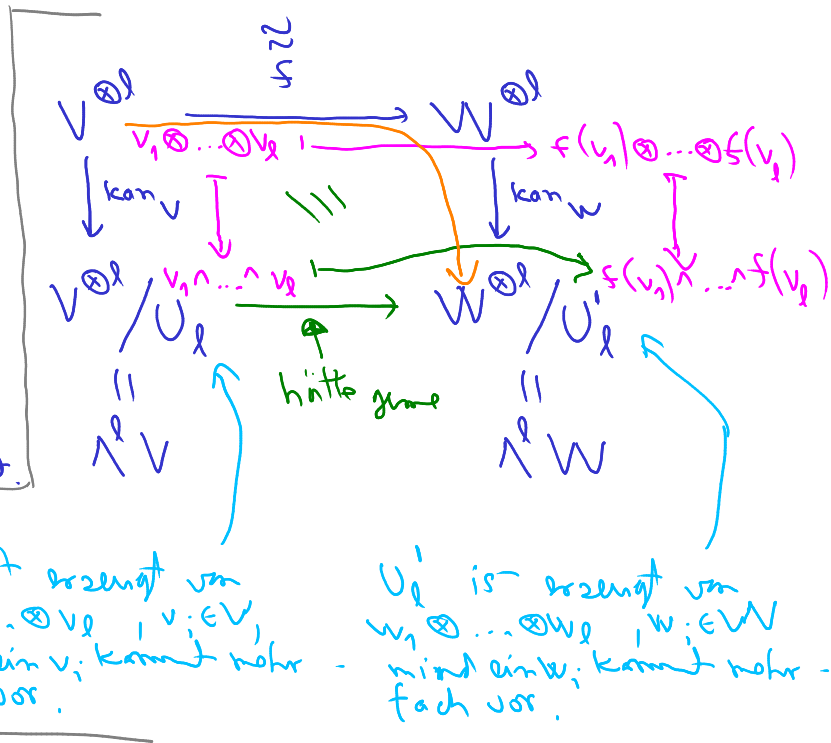 V^{⊗l} W^{⊗l}
v_1 ⊗ ... ⊗ v_l ⟼ f(v_1) ⊗ ... ⊗ f(v_l)
kan_V kan_W
v_1 ∧ ... ∧ v_l ⟼ f(v_1) ∧ ... ∧ f(v_l)
V^{⊗l} / U_l W^{⊗l} / U'_l
⊗
hätte gerne
= =
Λ^l V Λ^l W
erzeugt von
... ⊗ v_l , v_i ∈ V,
ein v_i kommt mehr -
vor.
U'_l ist erzeugt von
w_1 ⊗ ... ⊗ w_l , w_i ∈ W
mind ein w_i kommt mehr -
fach vor.